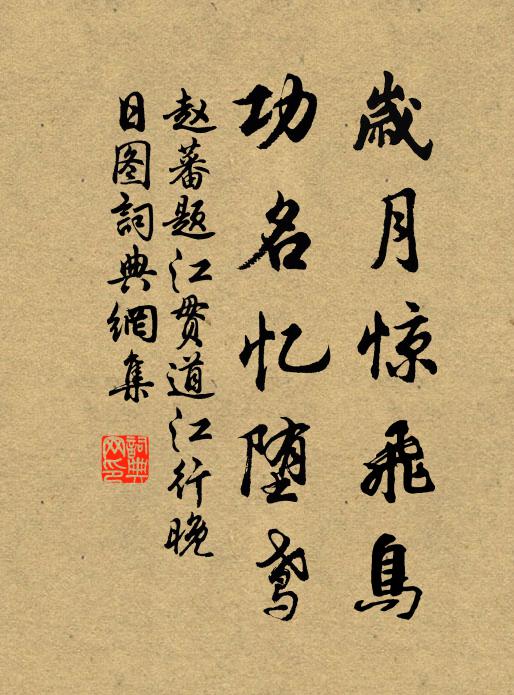 歲月惊飛鳥
功名忆堕鸢
赵蕃题江贯道江行晚
日图詞典網集
詞典
网印